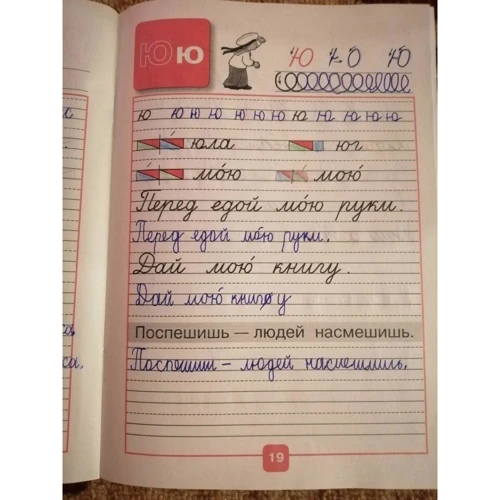 Ю ю Ю ю Ю
ю ю ю ю ю ю ю ю ю ю ю ю ю
юла юг
мóю мою́
Перед едой мóю руки.
Перед едой мóю руки.
Дай мою́ книгу.
Дай мою́ книгу
Поспешишь — людей насмешишь.
Поспешиш – людей насмешишь.
19